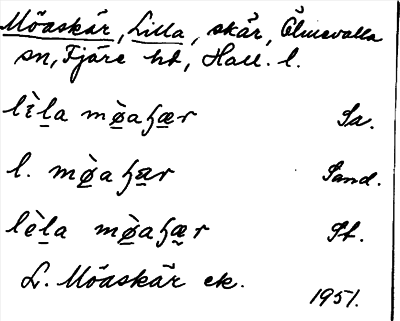 Möaskär, Lilla, skär, Ölmevalla
sn, Fjäre hd, Hall. l.
lɛ̀la mø̀aʃær Sa.
l. mø̀aʃær Sand.
lèla mø̀aʃær St.
L. Möaskär ek.
1951.